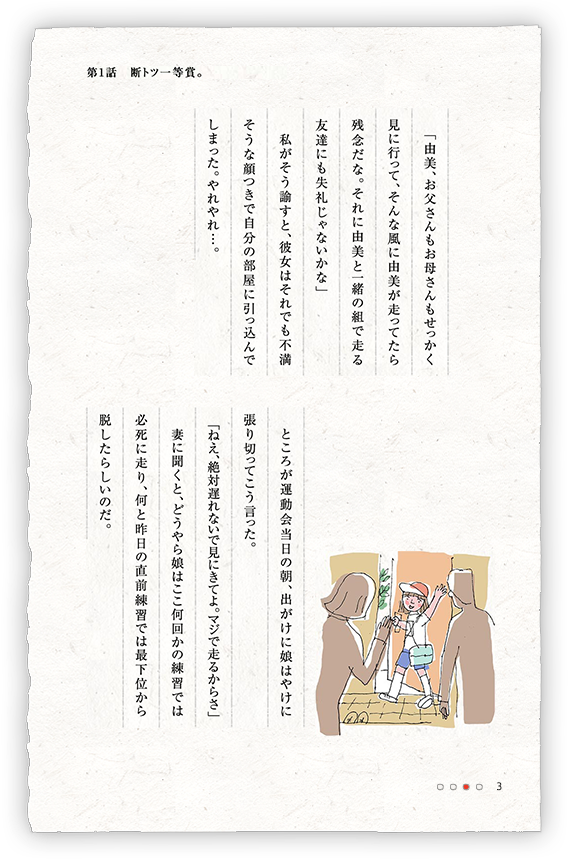 第1話　断トツ一等賞。
「由美、お父さんもお母さんもせっかく
見に行って、そんな風に由美が走ってたら
残念だな。それに由美と一緒の組で走る
友達にも失礼じゃないかな」
私がそう諭すと、彼女はそれでも不満
そうな顔つきで自分の部屋に引っ込んで
しまった。やれやれ…。
ところが運動会当日の朝、出がけに娘はやけに
張り切ってこう言った。
「ねえ、絶対遅れないで見にきてよ。マジで走るからさ」
妻に聞くと、どうやら娘はここ何回かの練習では
必死に走り、何と昨日の直前練習では最下位から
脱したらしいのだ。
3